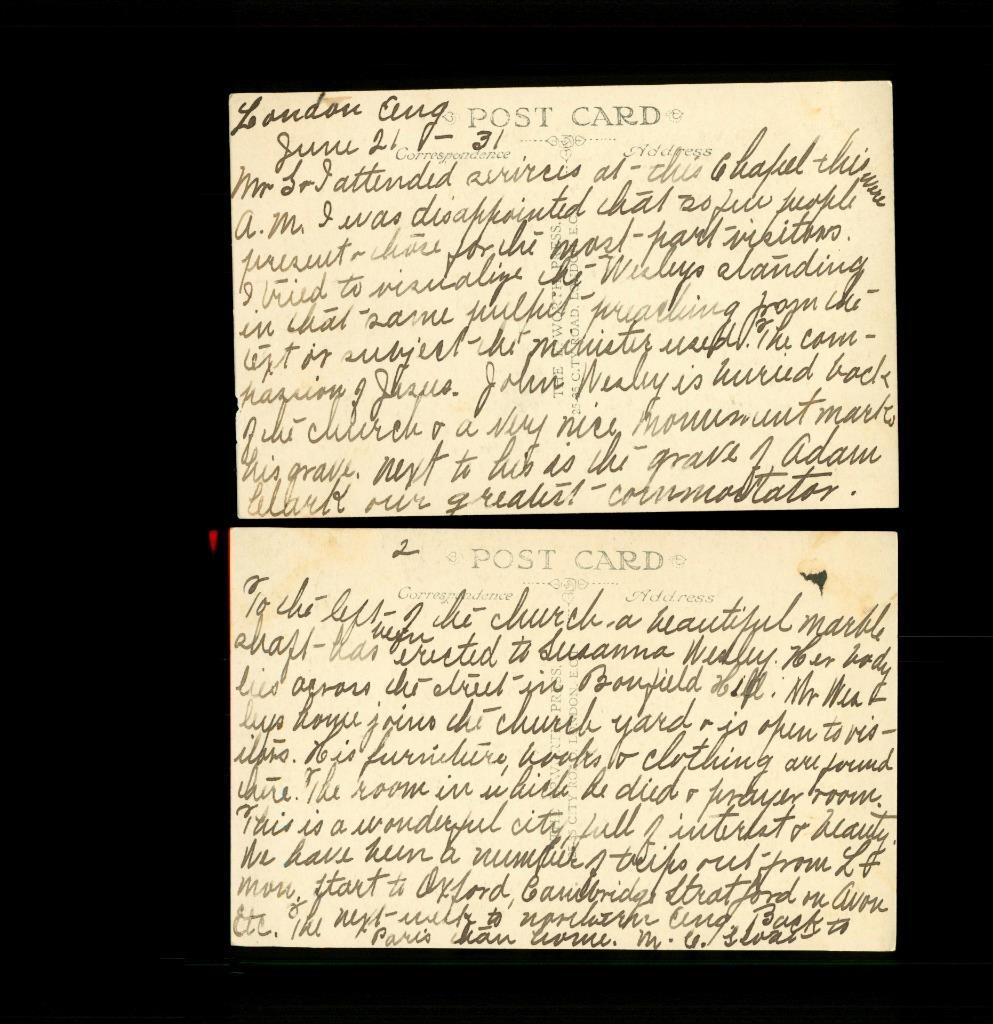 London Eng
POST CARD
June 21 - 31
Correspondence
Address
Mr S & I attended services at this Chapel this
A.M. I was disappointed that so few people were
present & those for the most part visitors.
I tried to visualize the Wesleys standing
in that same pulpit preaching from the
text or subject the minister used. The com-
passion of Jesus. John Wesley is buried back
of the church & a very nice monument marks
his grave. next to his is the grave of Adam
Clark our greatest commontator.
THE EPWORTH PRESS.
25-35 CITY ROAD, LONDON, E.C.
2
POST CARD
Correspondence
Address
To the left of the church a beautiful marble
shaft has been erected to Susanna Wesley. Her body
lies across the street in Bonfield Hill. Mr Wes
leys home joins the church yard & is open to vis-
itors. His furniture, books & clothing are found
there. The room in which he died & prayer room.
This is a wonderful city, full of interest & beauty.
We have been a number of trips out from L &
mon. start to Oxford, Cambridge Stratford on Avon
Etc. The next week to northern Eng. Back to
Paris than home. M. C.
THE EPWORTH PRESS.
25-35 CITY ROAD, LONDON, E.C.